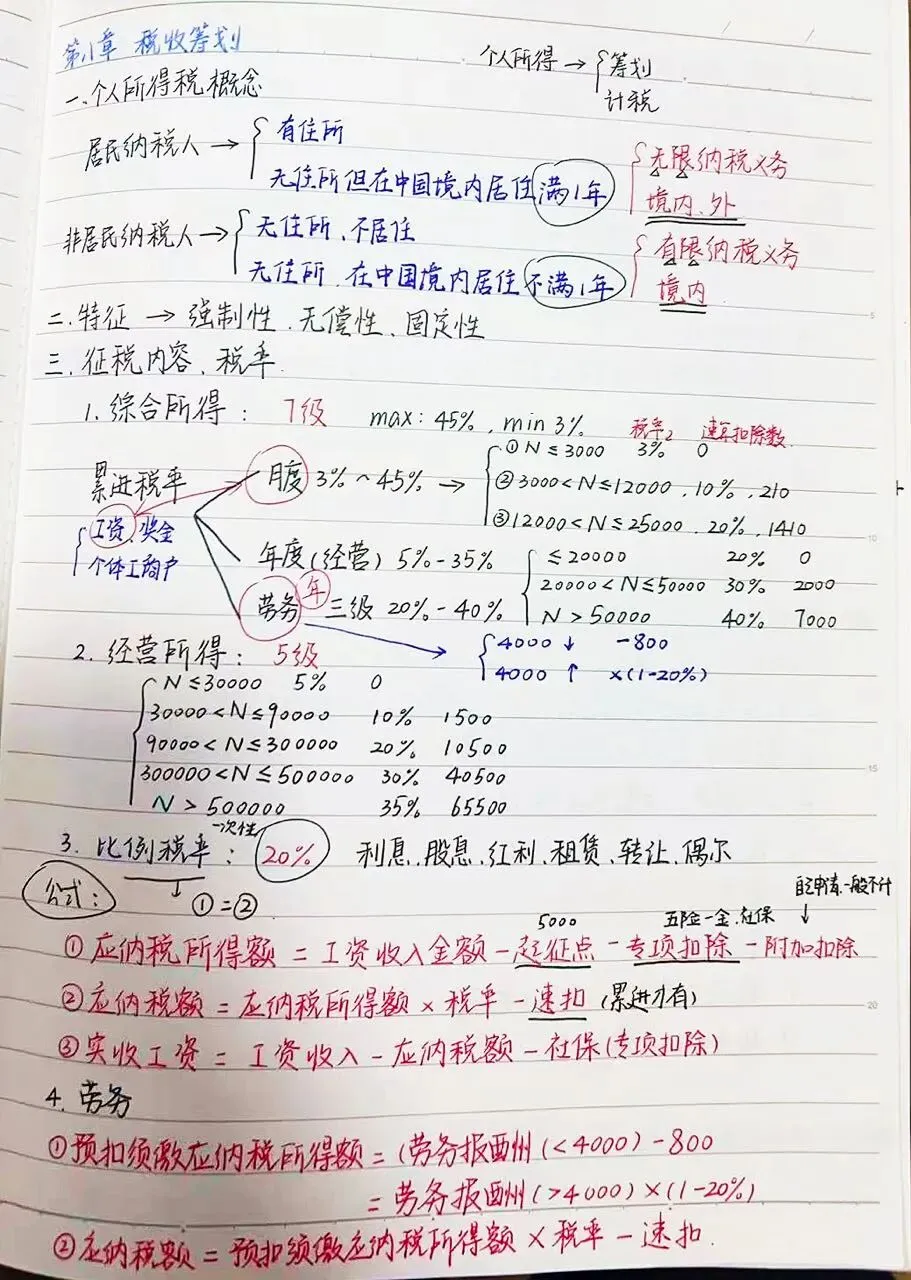 第1章 税收筹划
个人所得→{筹划
计税
一.个人所得税概念
居民纳税人→{有住所
无住所但在中国境内居住满1年
{无限纳税义务
境内、外
非居民纳税人→{无住所、不居住
无住所、在中国境内居住不满1年
{有限纳税义务
境内
二.特征→强制性.无偿性、固定性
三.征税内容、税率
1.综合所得: 7级 max:45%, min 3% 税率2 速算扣除数
累进税率
{工资、奖金
个体工商户
月度 3%~45%→{①N≤3000 3% 0
②3000<N≤12000, 10%, 210
③12000<N≤25000, 20%, 1410
年度(经营) 5%-35%
劳务 年 三级 20%-40%
{≤20000 20% 0
20000<N≤50000 30% 2000
N>50000 40% 7000
{4000↓ -800
4000↑ ×(1-20%)
2.经营所得: 5级
{N≤30000 5% 0
30000<N≤90000 10% 1500
90000<N≤300000 20% 10500
300000<N≤500000 30% 40500
N>500000 35% 65500
一次性
3.比例税率: 20% 利息、股息、红利、租赁、转让、偶尔
公式:
①=②
5000 五险一金.社保 自己申请.一般不计
①应纳税所得额=工资收入金额-起征点-专项扣除-附加扣除
②应纳税额=应纳税所得额×税率-速扣(累进才有)
③实收工资=工资收入-应纳税额-社保(专项扣除)
4.劳务
①预扣须缴应纳税所得额=(劳务报酬州(<4000)-800
=劳务报酬州(>4000)×(1-20%)
②应纳税额=预扣须缴应纳税所得额×税率-速扣.